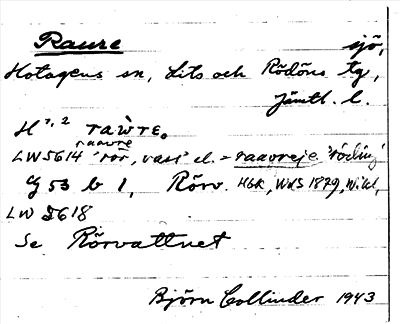 Raure sjö,
Hotagens sn, Lits och Rödöns tg,
Jämtl. l.
H 1,2 raẁre.
raavre
LW 5614 'rör, vass' el. = raavreje 'röding'
G 53 b 1, Rörv. HGK, WdS 1879, Wikl,
LW 5618
Se Rörvattnet
Björn Collinder 1943